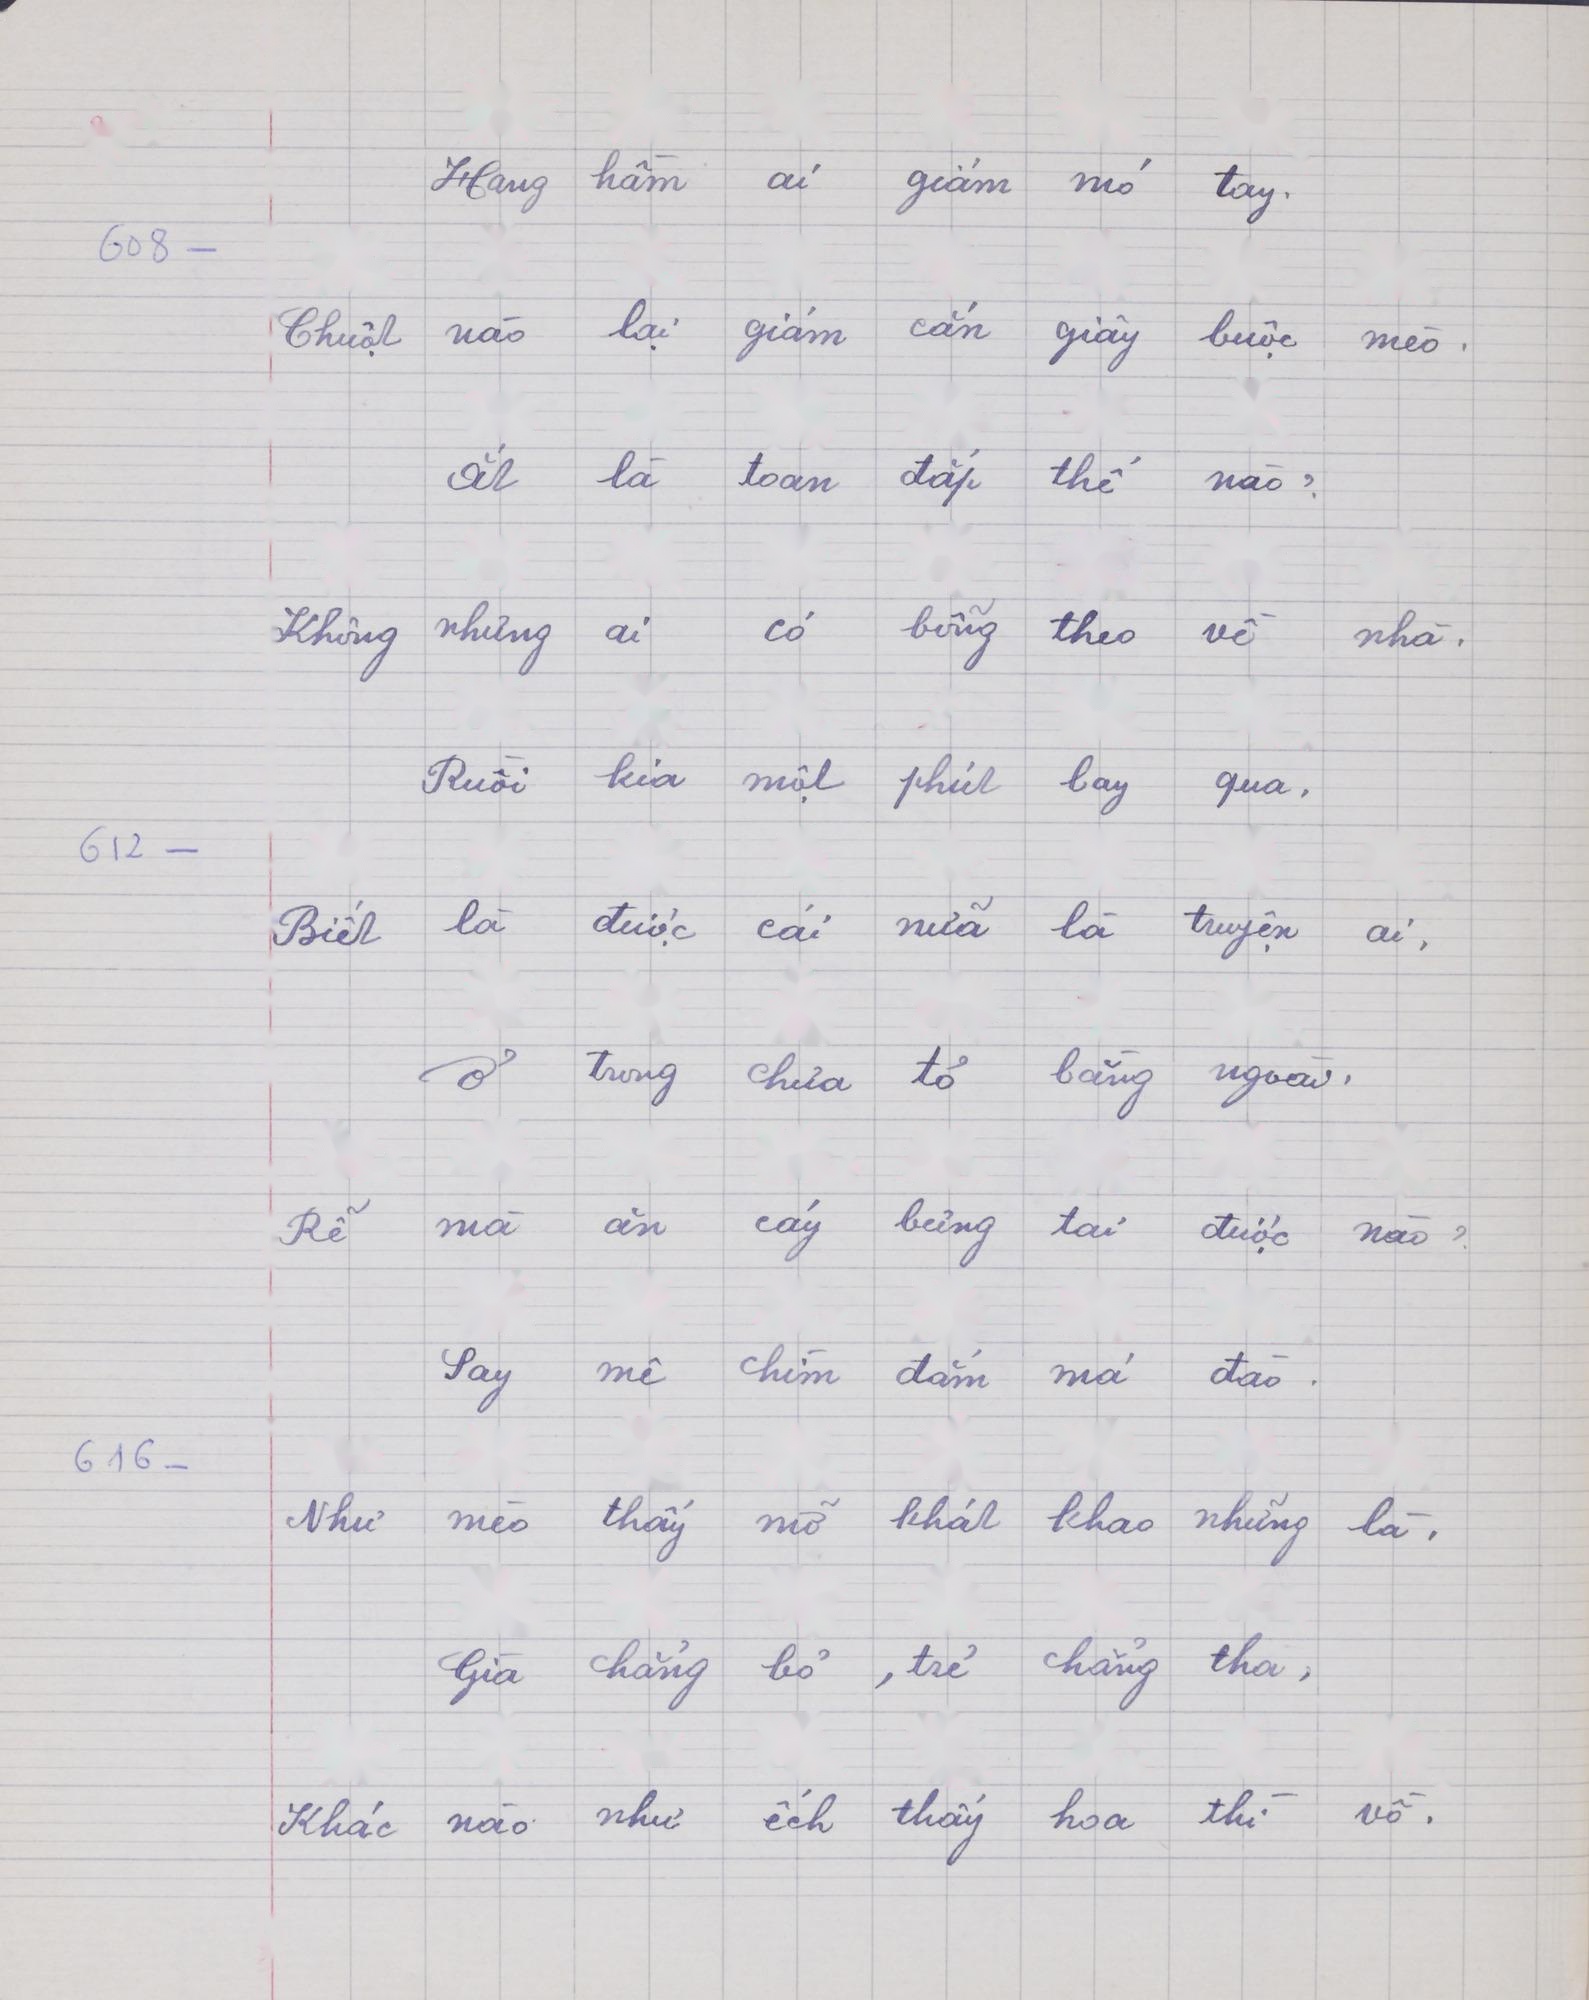 Hang hầm ai giám mó tay.
608 –
Chuột nào lại giám cắn giây buộc mèo.
Ắt là toan đắp thế nào?
Không nhưng ai có bỗng theo về nhà.
Ruồi kia một phút bay qua,
612 –
Biết là được cái nữa là truyện ai,
Ở trong chưa tỏ bằng ngoài,
Rễ mà ăn cáy bưng tai được nào?
Say mê chìm đắm má đào.
616 –
Như mèo thấy mỡ khát khao những là,
Già chẳng bỏ, trẻ chẳng tha,
Khác nào như ếch thấy hoa thì vồ.